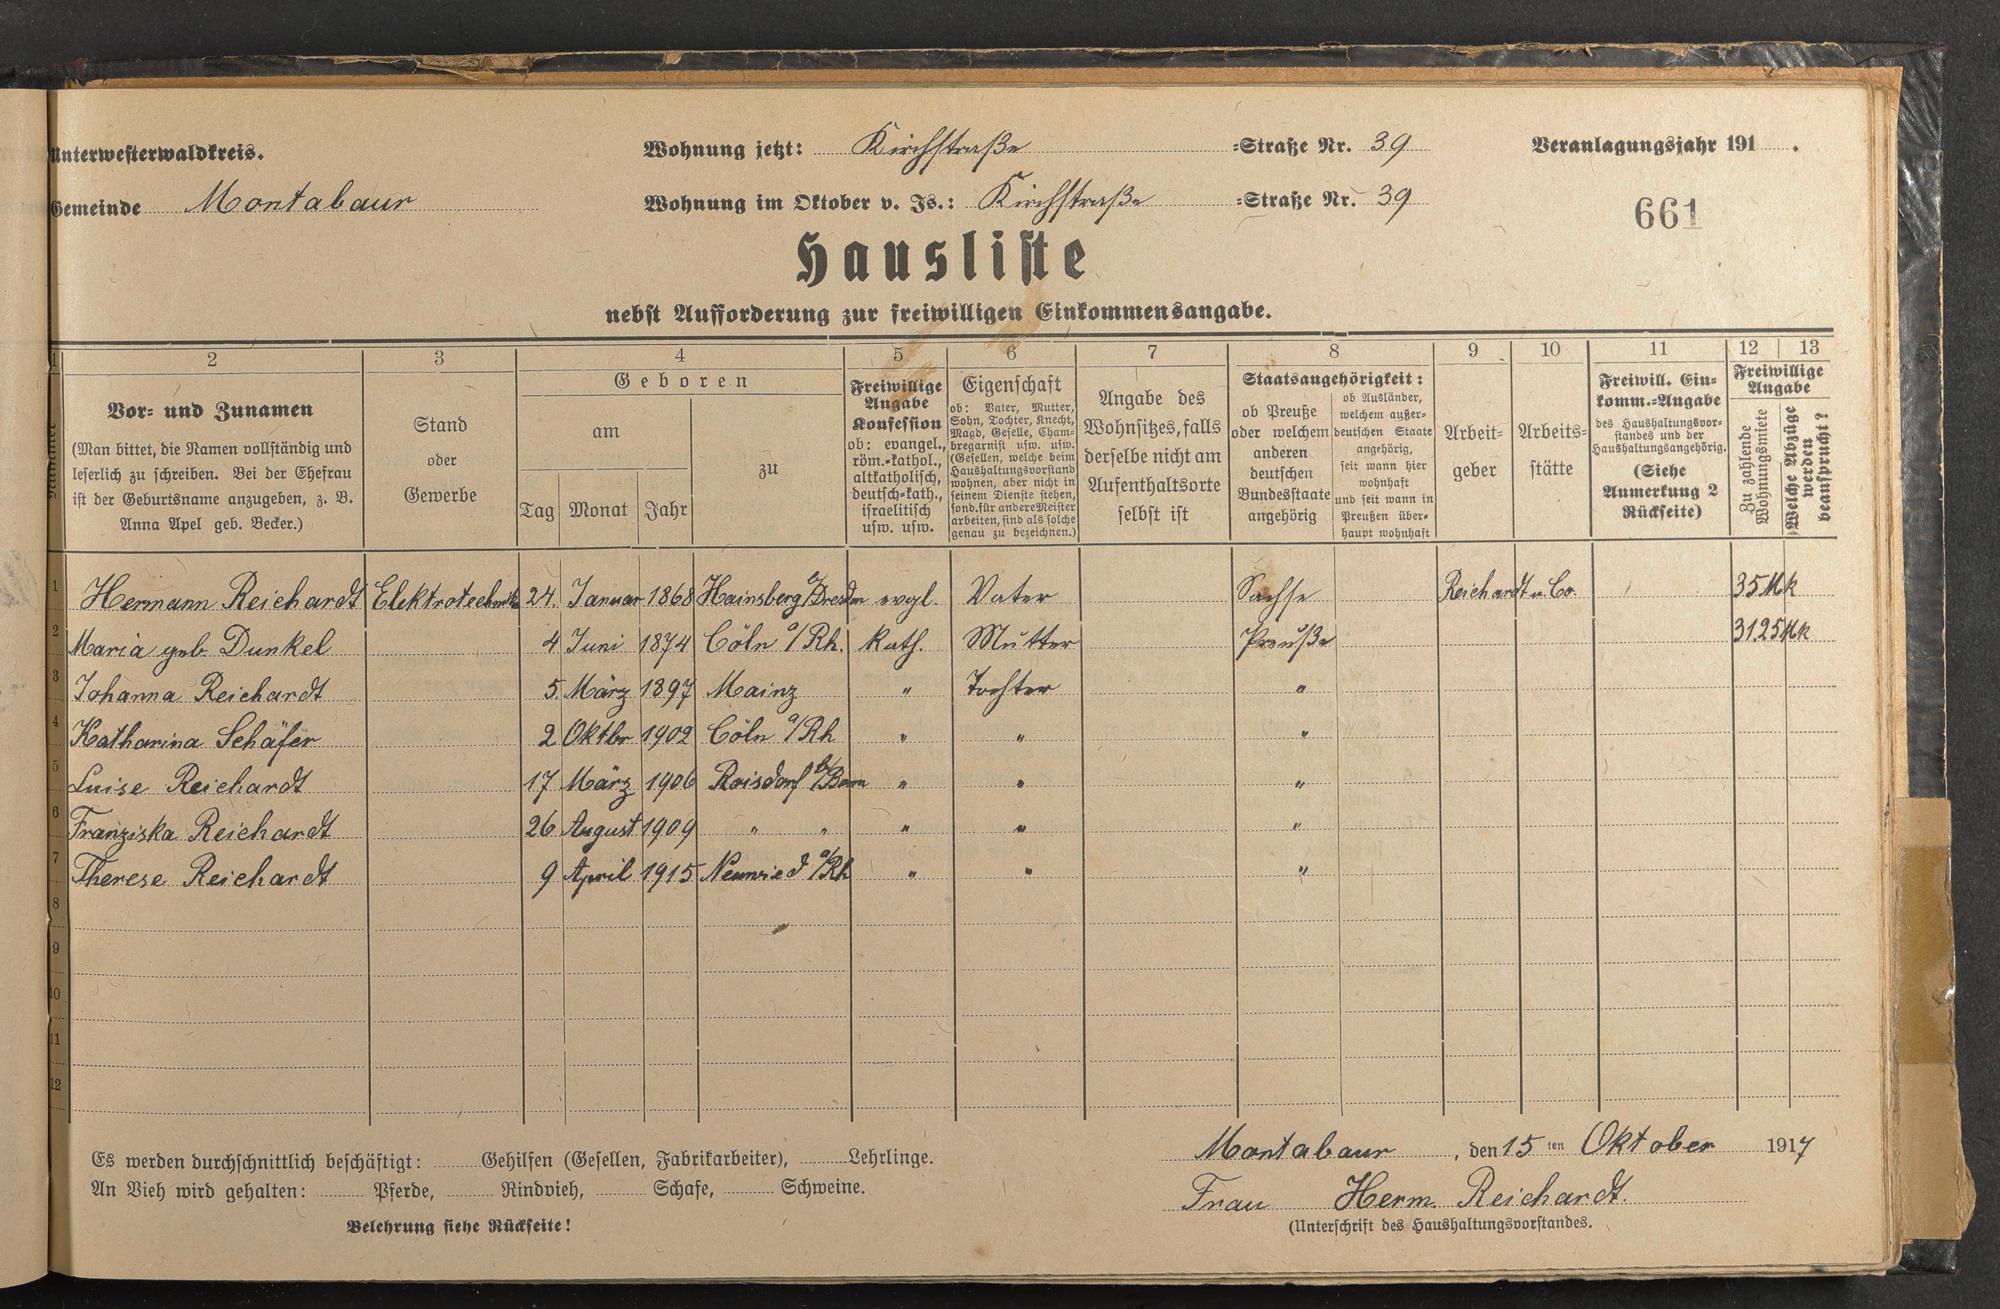 Unterwesterwaldkreis.
Wohnung jetzt: Kirchstraße =Straße Nr. 39
Veranlagungsjahr 191 .
Gemeinde Montabaur
Wohnung im Oktober v. Js.: Kirchstraße =Straße Nr. 39
661
Hausliste
nebst Aufforderung zur freiwilligen Einkommensangabe.
1 2 3 4 5 6 7 8 9 10 11 12 13
Nummer
Vor= und Zunamen
(Man bittet, die Namen vollständig und
leserlich zu schreiben. Bei der Ehefrau
ist der Geburtsname anzugeben, z. B.
Anna Apel geb. Becker.)
Stand
oder
Gewerbe
Geboren
am
Tag Monat Jahr
zu
Freiwillige
Angabe
Konfession
ob: evangel.,
röm.=kathol.,
altkatholisch,
deutsch=kath.,
israelitisch
usw. usw.
Eigenschaft
ob: Vater, Mutter,
Sohn, Tochter, Knecht,
Magd, Geselle, Cham=
bregarnist usw. usw.
(Gesellen, welche beim
Haushaltungsvorstand
wohnen, aber nicht in
seinem Dienste stehen,
sond. für andere Meister
arbeiten, sind als solche
genau zu bezeichnen.)
Angabe des
Wohnsitzes, falls
derselbe nicht am
Aufenthaltsorte
selbst ist
Staatsangehörigkeit:
ob Preuße
oder welchem
anderen
deutschen
Bundesstaate
angehörig
ob Ausländer,
welchem außer=
deutschen Staate
angehörig,
seit wann hier
wohnhaft
und seit wann in
Preußen über=
haupt wohnhaft
Arbeit=
geber
Arbeits=
stätte
Freiwill. Ein=
komm.=Angabe
des Haushaltungsvor=
standes und der
Haushaltungsangehörig.
(Siehe
Anmerkung 2
Rückseite)
Freiwillige
Angabe
Zu zahlende
Wohnungsmiete
Welche Abzüge
werden
beansprucht?
1 Hermann Reichardt Elektrotechnik 24. Januar 1868 Hainsberg b/Dresden evgl. Vater Sachse Reichardt u. Co. 35 Mk
2 Maria geb. Dunkel 4 Juni 1874 Cöln a/Rh. kath. Mutter Preuße 31.25 Mk
3 Johanna Reichardt 5. März 1897 Mainz " Tochter "
4 Katharina Schäfer 2 Oktbr 1902 Cöln a/Rh " " "
5 Luise Reichardt 17 März 1906 Roisdorf b/Bonn " " "
6 Franziska Reichardt 26 August 1909 " " " " "
7 Therese Reichardt 9 April 1915 Neuwied a/Rh " " "
8
9
10
11
12
Es werden durchschnittlich beschäftigt: Gehilfen (Gesellen, Fabrikarbeiter), Lehrlinge.
An Vieh wird gehalten: Pferde, Rindvieh, Schafe, Schweine.
Belehrung siehe Rückseite!
Montabaur, den 15 ten Oktober 1917
Frau Herm. Reichardt.
(Unterschrift des Haushaltungsvorstandes.